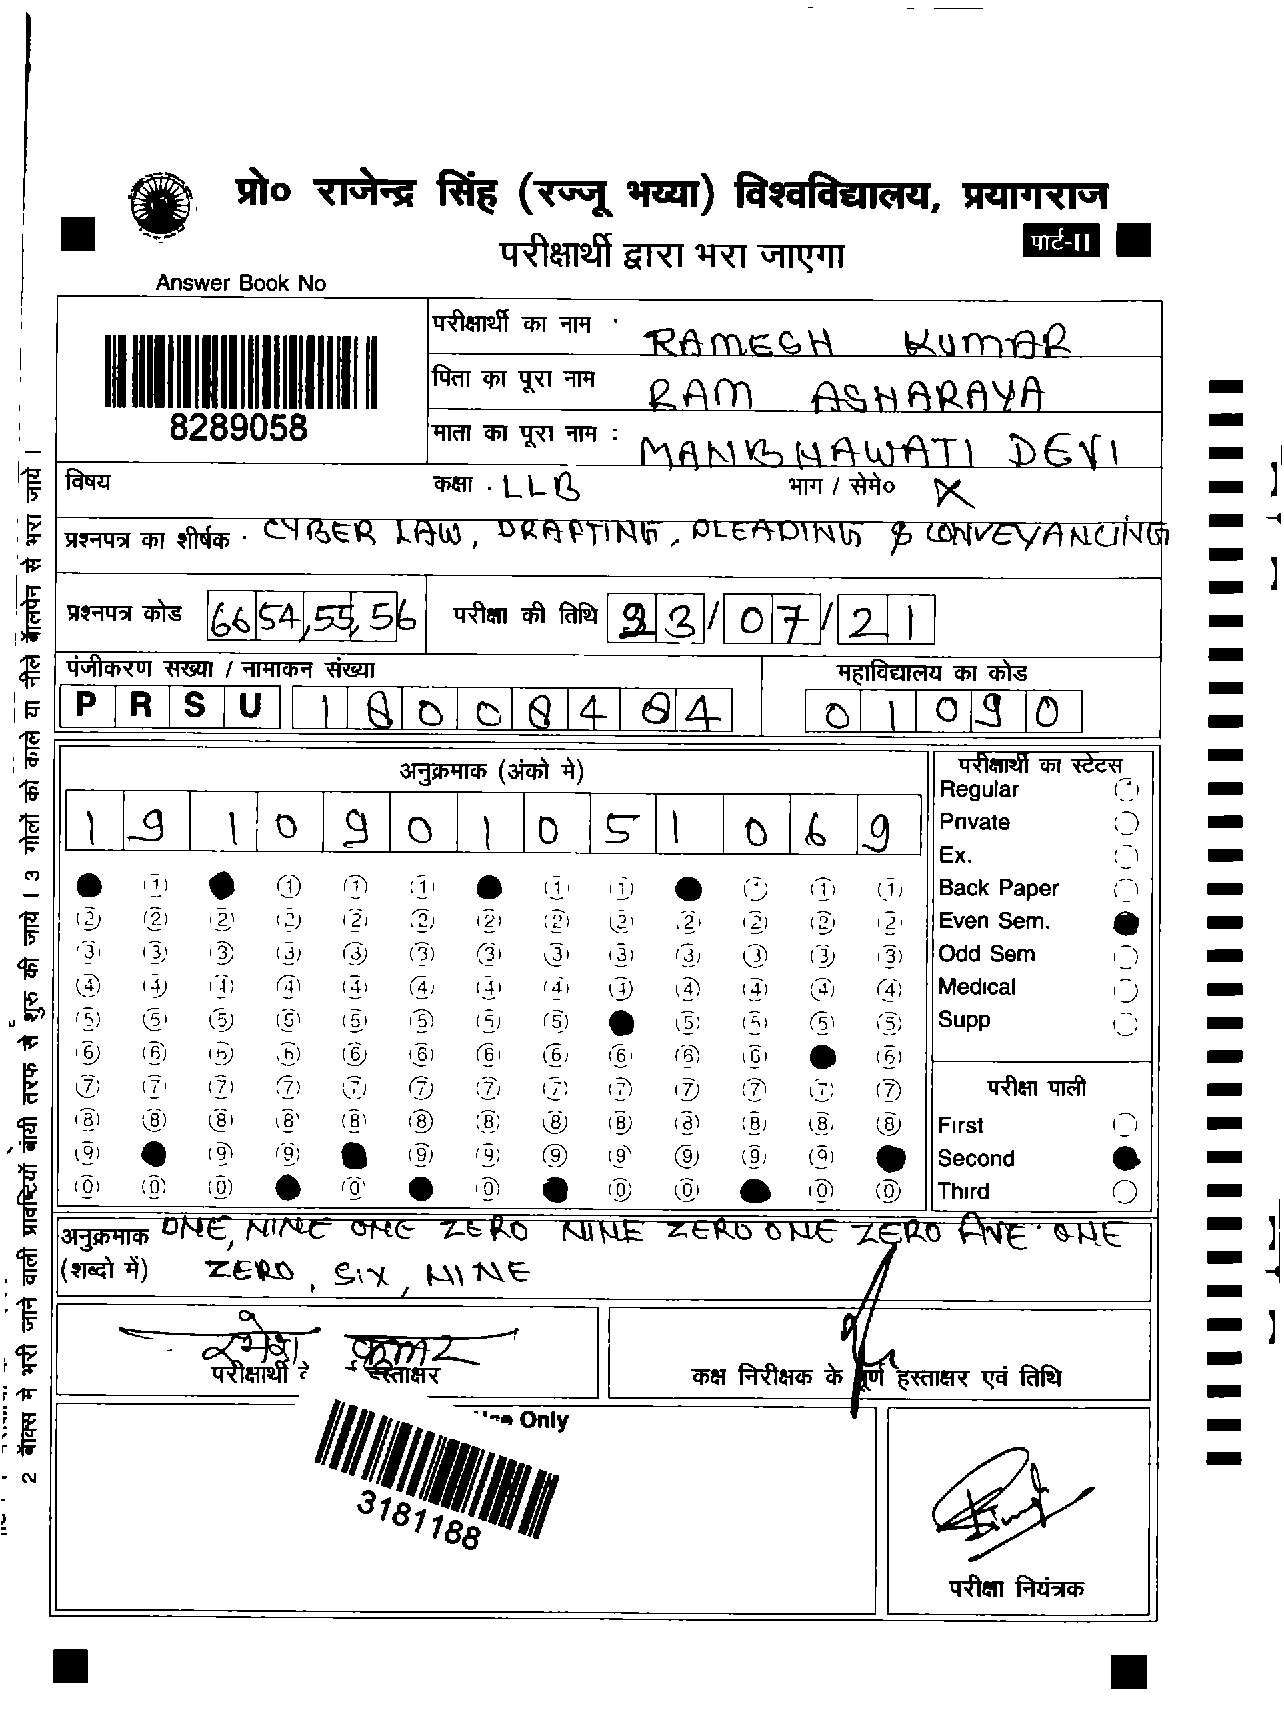 प्रो० राजेन्द्र सिंह (रज्जू भय्या) विश्वविद्यालय, प्रयागराज
परीक्षार्थी द्वारा भरा जाएगा
पार्ट-II
Answer Book No
8289058
परीक्षार्थी का नाम RAMESH KUMAR
पिता का पूरा नाम RAM ASHARAYA
माता का पूरा नाम : MANBHAWATI DEVI
विषय कक्षा . LLB भाग / सेमे० X
प्रश्नपत्र का शीर्षक . CYBER LAW, DRAFTING, PLEADING & CONVEYANCING
प्रश्नपत्र कोड 6654,55,56 परीक्षा की तिथि 23/07/21
पंजीकरण सख्या / नामाकन संख्या महाविद्यालय का कोड
P R S U 1 8 0 0 8 4 8 4 0 1 0 9 0
अनुक्रमाक (अंको मे)
1 9 1 0 9 0 1 0 5 1 0 6 9
परीक्षार्थी का स्टेटस
Regular
Private
Ex.
Back Paper
Even Sem.
Odd Sem
Medical
Supp
परीक्षा पाली
First
Second
Third
अनुक्रमाक ONE, NINE ONE ZERO NINE ZERO ONE ZERO FIVE ONE
(शब्दो में) ZERO, SIX, NINE
रमेश कुमार
परीक्षार्थी के हस्ताक्षर
कक्ष निरीक्षक के पूर्ण हस्ताक्षर एवं तिथि
Use Only
3181188
परीक्षा नियंत्रक
2 बॉक्स मे भरी जाने वाली प्रविष्टियॉ बायी तरफ से शुरु की जाये । 3 गोलों को काले या नीले बॉलपेन से भरा जाये ।